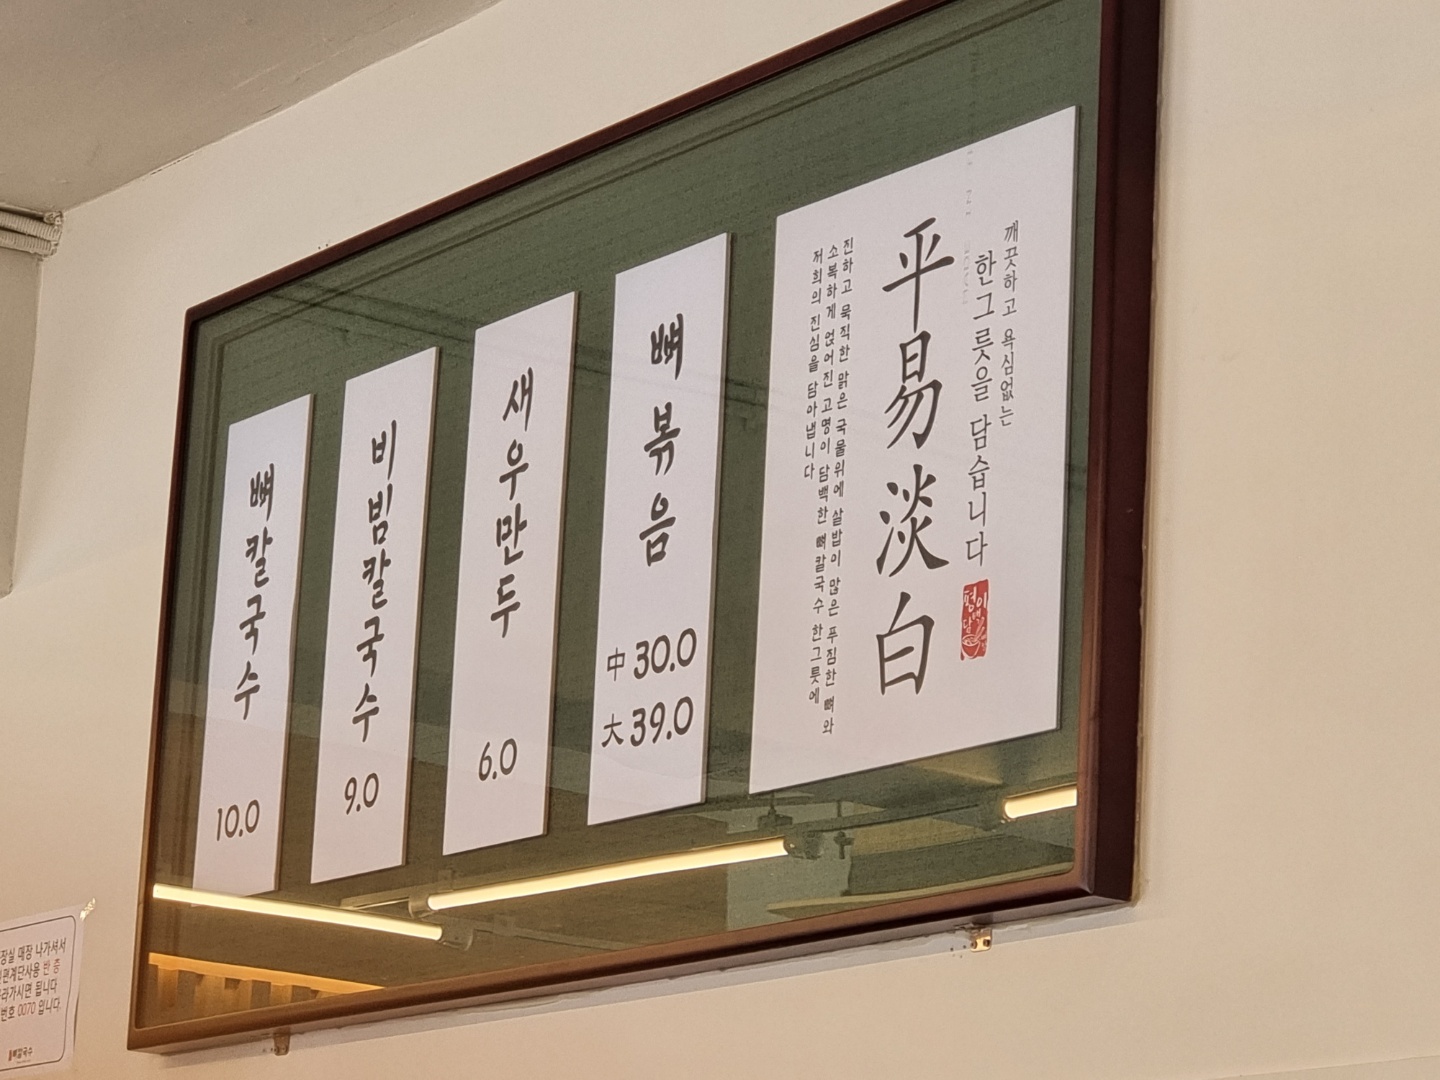 뼈칼국수
10.0
비빔칼국수
9.0
새우만두
6.0
뼈볶음
中 30.0
大 39.0
깨끗하고 욕심없는
한그릇을 담습니다
平易淡白
진하고 묵직한 맑은 국물위에 살밥이 많은 푸짐한 뼈와
소복하게 얹어진 고명이 담백한 뼈칼국수 한그릇에
저희의 진심을 담아냅니다
평이
장실 매장 나가셔서
편계단사용 반 층
라가시면 됩니다
번호 0070 입니다.
뼈칼국수